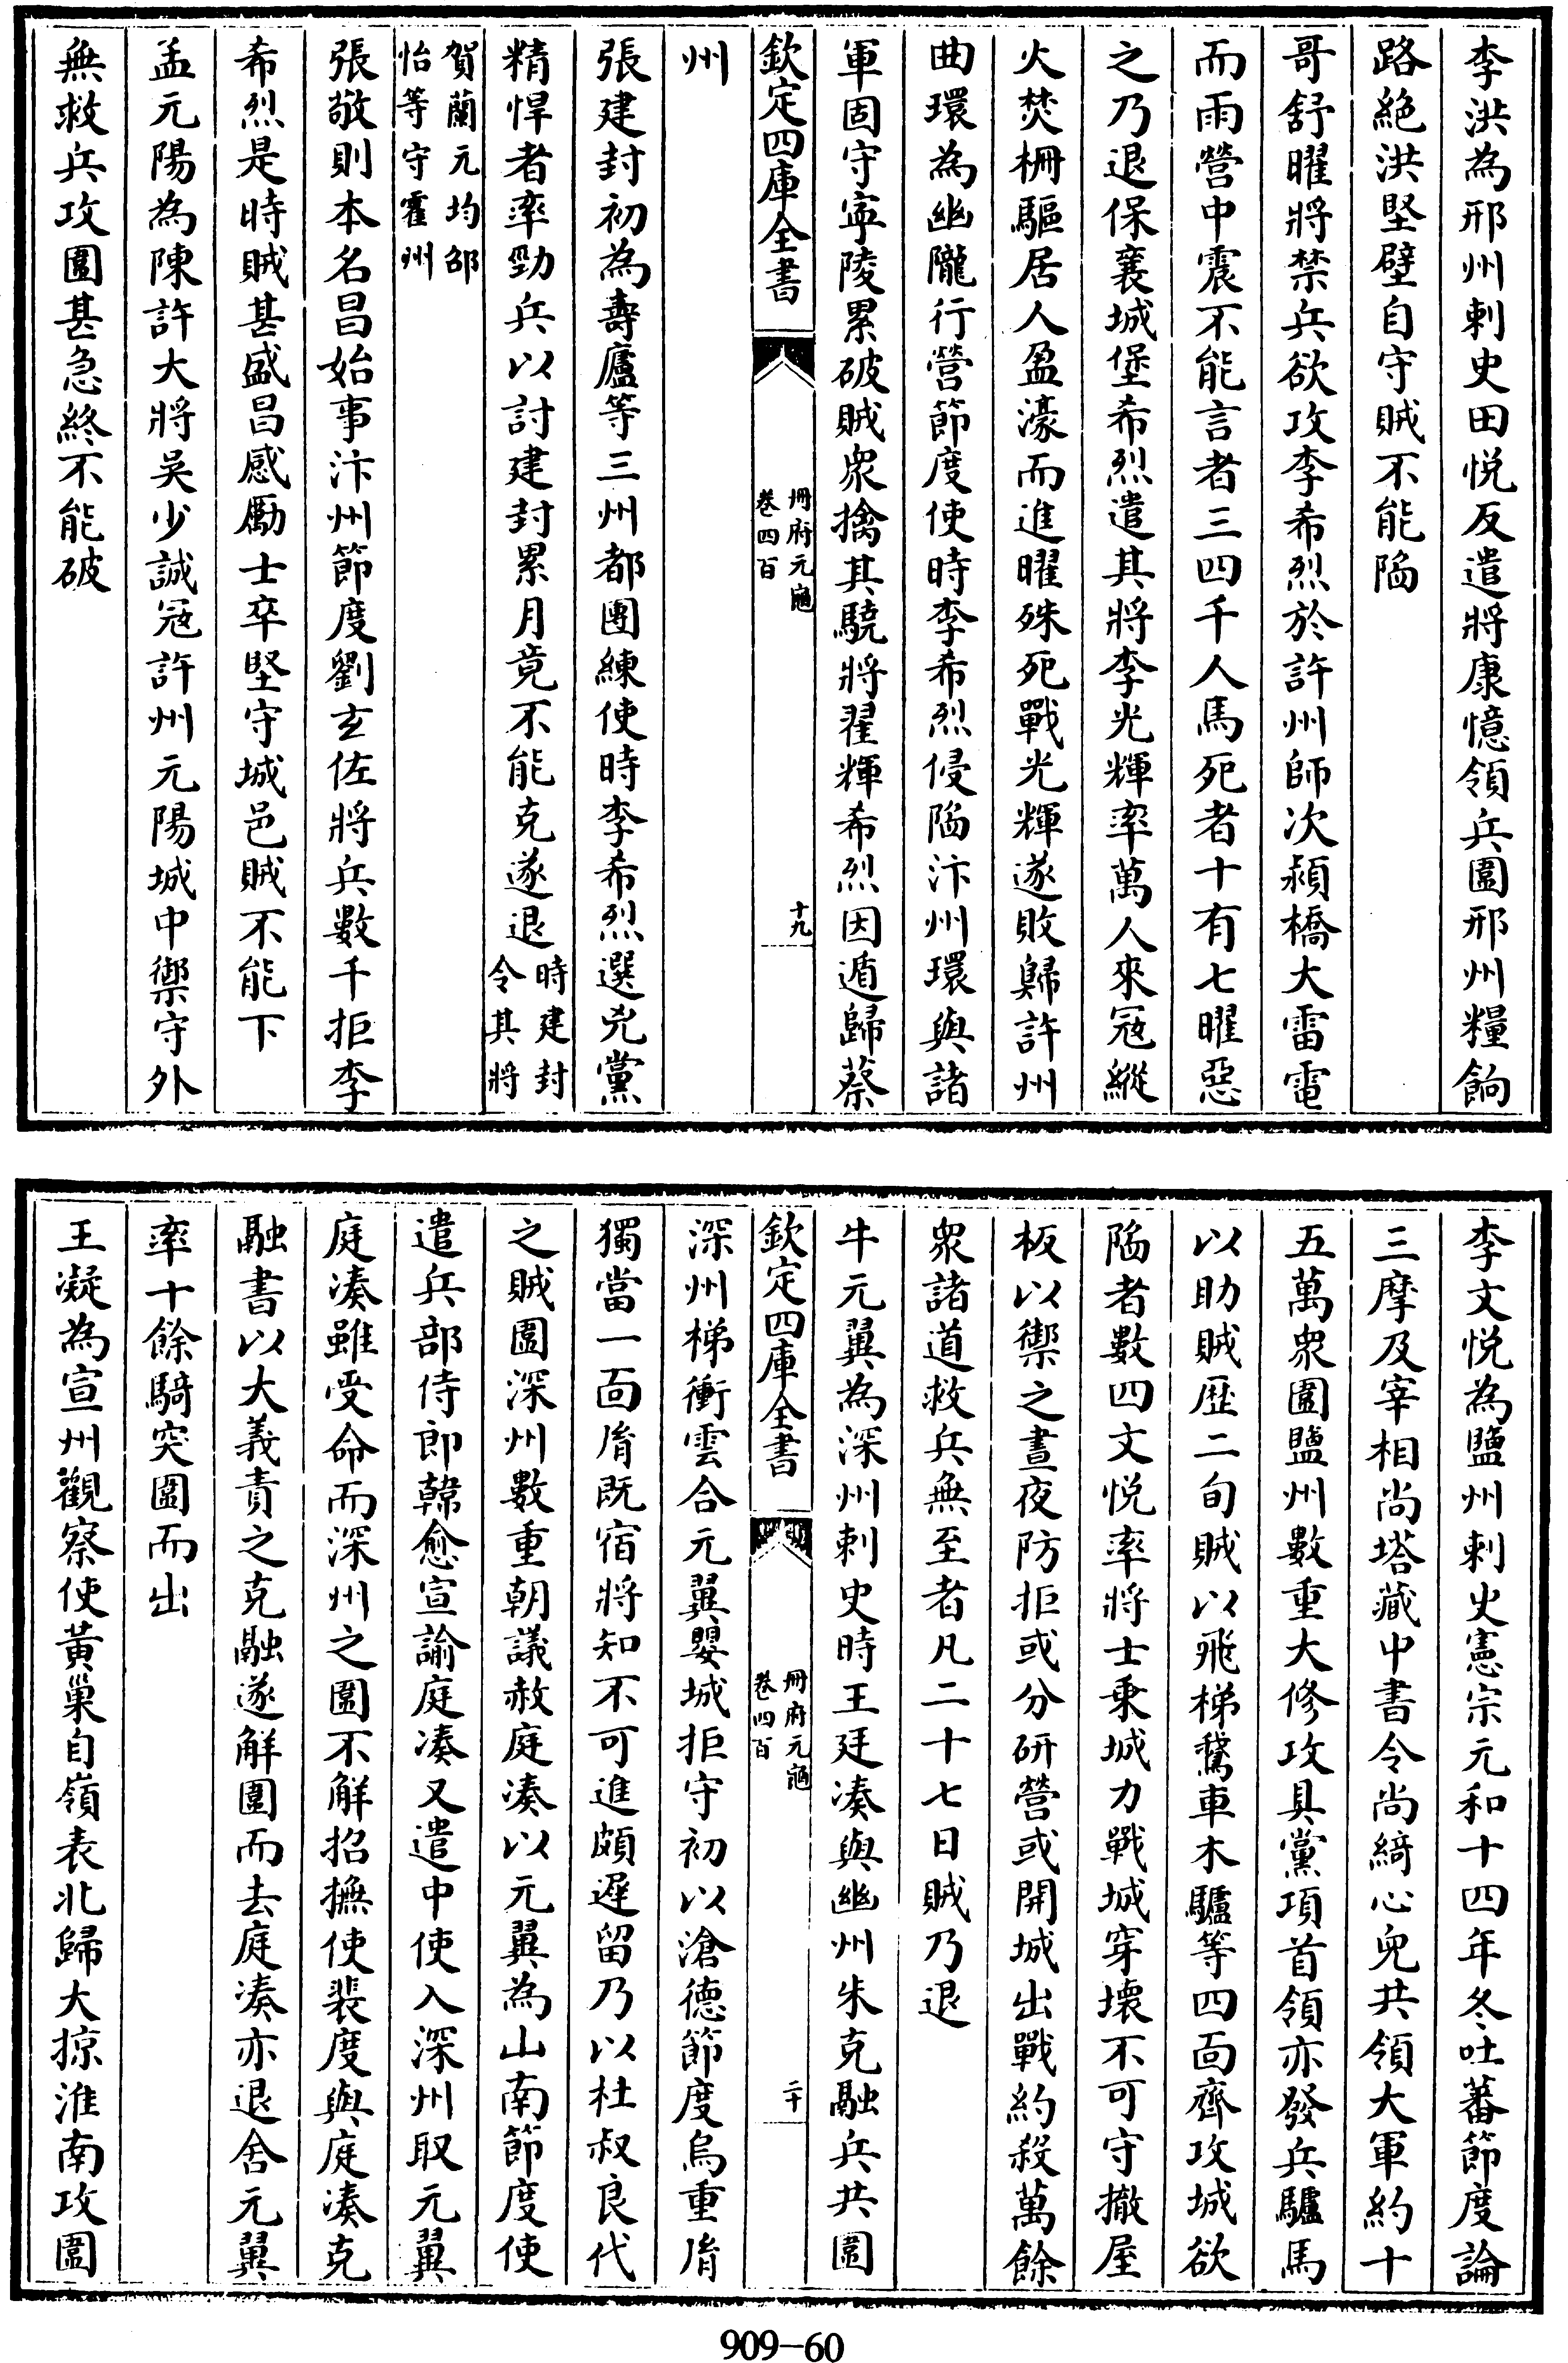 李洪為邢州刺史田悦反遣將康愔領兵圍邢州糧餉
路絶洪堅壁自守賊不能陷
哥舒曜將禁兵欲攻李希烈於許州師次潁橋大雷電
而雨營中震不能言者三四千人馬死者十有七曜惡
之乃退保襄城堡希烈遣其將李光輝率萬人來冦縱
火焚柵驅居人盈濠而進曜殊死戰光輝遂敗歸許州
曲環為幽隴行營節度使時李希烈侵陷汴州環與諸
軍固守寧陵累破賊衆擒其驍將翟輝希烈因遁歸蔡
欽定四庫全書
冊府元龜
卷四百
十九
州
張建封初為壽廬等三州都團練使時李希烈選兇黨
精悍者率勁兵以討建封累月竟不能克遂退時建封令其將
賀蘭元均邵怡等守霍州
張敬則本名昌始事汴州節度劉玄佐將兵數千拒李
希烈是時賊甚盛昌感勵士卒堅守城邑賊不能下
孟元陽為陳許大將吳少誠冦許州元陽城中禦守外
無救兵攻圍甚急終不能破
李文悦為鹽州刺史憲宗元和十四年冬吐蕃節度論
三摩及宰相尚塔藏中書令尚綺心兒共領大軍約十
五萬衆圍鹽州數重大修攻具黨項首領亦發兵驢馬
以助賊歴二旬賊以飛梯鵞車木驢等四面齊攻城欲
陷者數四文悦率將士乗城力戰城穿壊不可守撤屋
板以禦之晝夜防拒或分研營或開城出戰約殺萬餘
衆諸道救兵無至者凡二十七日賊乃退
牛元翼為深州刺史時王廷凑與幽州朱克融兵共圍
欽定四庫全書
冊府元龜
卷四百
二十
深州梯衝雲合元翼嬰城拒守初以滄德節度烏重胤
獨當一面胤既宿將知不可進頗遲留乃以杜叔良代
之賊圍深州數重朝議赦庭凑以元翼為山南節度使
遣兵部侍郎韓愈宣諭庭凑又遣中使入深州取元翼
庭凑雖受命而深州之圍不解招撫使裴度與庭凑克
融書以大義責之克融遂解圍而去庭凑亦退舍元翼
率十餘騎突圍而出
王凝為宣州觀察使黃巢自嶺表北歸大掠淮南攻圍
909-60